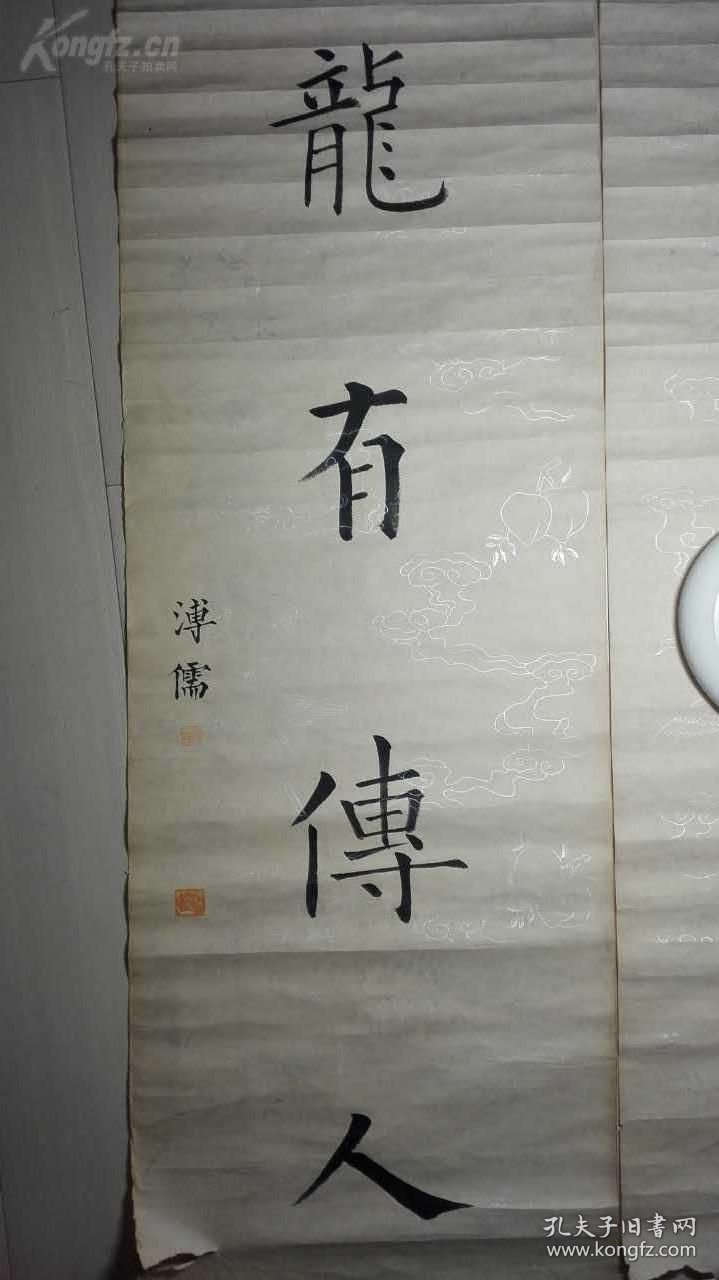 Kongfz.cn
孔夫子拍卖网
龍有傳人
溥儒
孔夫子旧書网
www.kongfz.com